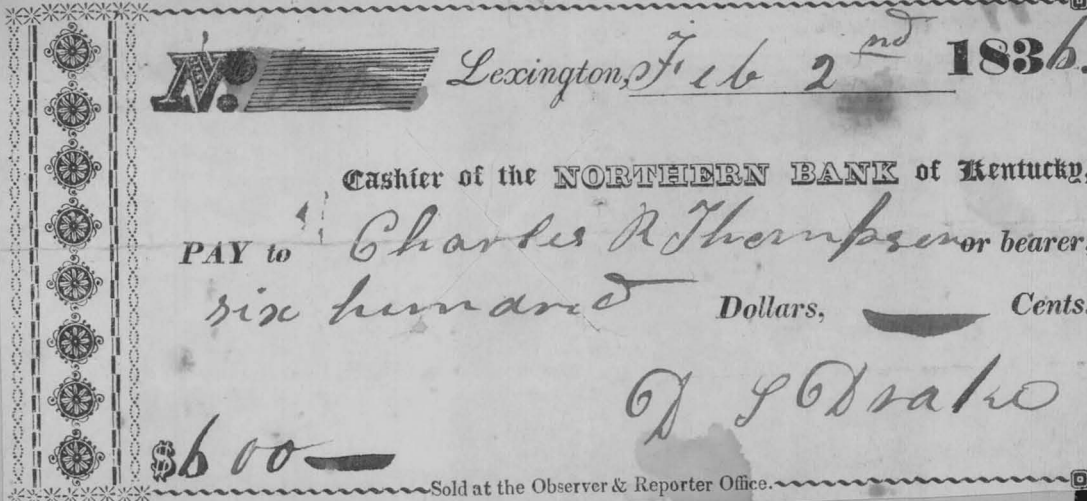 No.
Lexington, Feb 2nd 1836.
Cashier of the NORTHERN BANK of Kentucky,
PAY to Charles R Thompson or bearer,
six hundred Dollars, — Cents.
D S Drake
$600 —
Sold at the Observer & Reporter Office.